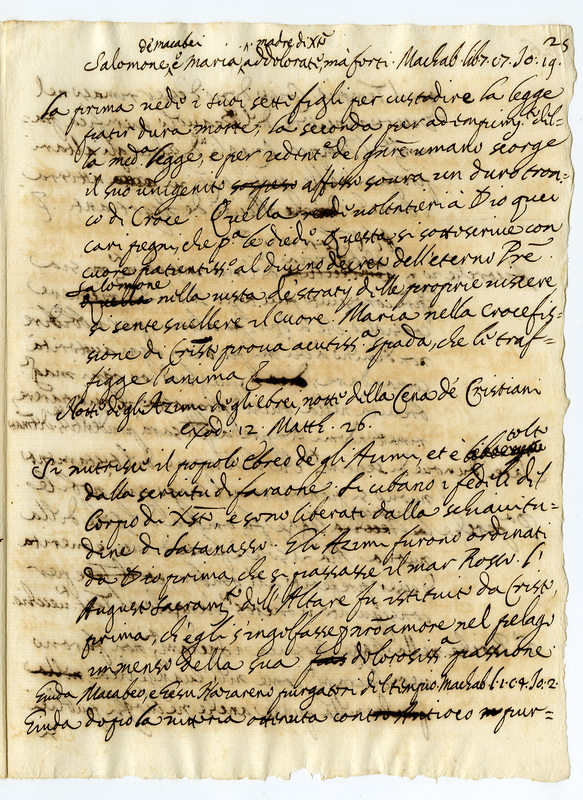 25
de macabei madre di Xto
Salomone, e Maria addolorate, mà forti. Machab. lib. 7. c 7. Jo. 19.
La prima vede i suoi sette figli per custodire la legge
patir dura morte; la seconda per adempim.to del-
la med.a legge, e per redent.e del gñre umano scorge
il suo unigenito affisso soura un duro tron-
co di Croce. Quella volentieri à Dio quei
cari pegni, che p.a le diede. Questa si sottoscrive con
cuore patientiss.o al divino decreto dell'eterno Pre.
Salomone
nella vista de' stratij delle proprie viscere
si sente svellere il cuore. Maria nella Crocefis-
sione di Cristo prova acutiss.a spada, che le traf-
figge l'anima
Notte degli Azimi degli ebrei, notte della Cena de' Cristiani
exod. 12. Matth. 26.
tolto
Si nutrisce il popolo ebreo de gli Azimi, et è
dalla servitù di faraone. Si cibano i fedeli del
Corpo di Xto, e sono liberati dalla schiavitu-
dine di Satanasso. Gli Azimi furono ordinati
da Dio prima, che si passasse il mar Rosso. l'
Augusto Sacram.to dell'Altare fù istituito da Cristo
prima, ch'egli s'ingolfasse p nro amore nel pelago
immenso della sua dolorosiss.a passione
Giuda Macabeo, e Giesu Nazareno purgatori del tempio. Machab. l. 1. c 4. Jo. 2.
Giuda dopo la vittoria ottenuta contro Antioco pur-